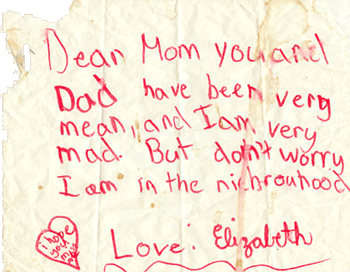 Dear Mom you and
Dad have been very
mean, and I am very
mad. But don't worry
I am in the nichrouhood
Love: Elizabeth
i hope
you